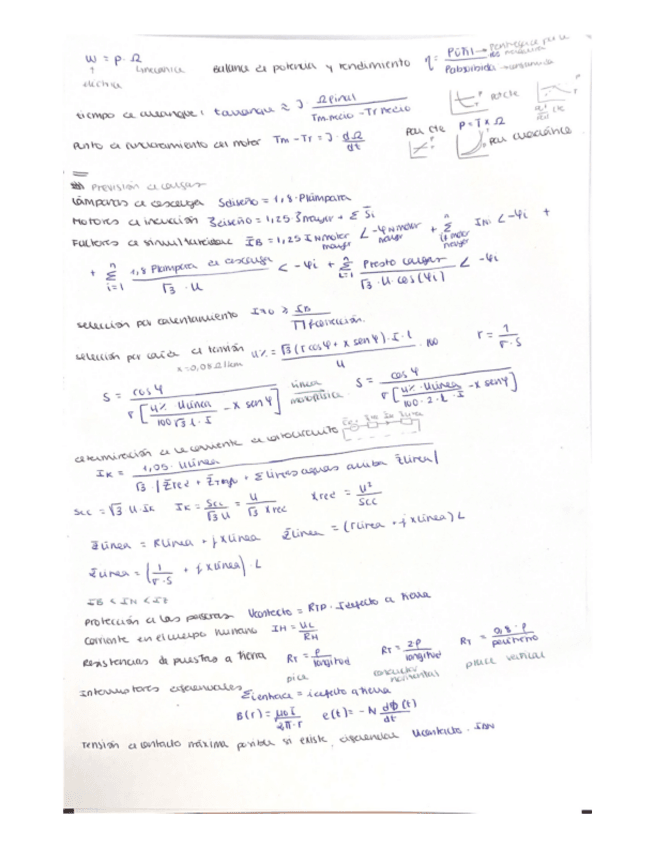 w = p · Ω   Balance de potencia y rendimiento η = Pútil / Pabsorbida
↑ eléctrica   mecánica
tiempo de arranque: tarranque ≈ J · Ωfinal / (Tm.medio - Tr medio)   par cte
Punto de funcionamiento del motor Tm - Tr = J · dΩ/dt   par cte   P = T × Ω   par cuadrático
Previsión de cargas
Lámparas de descarga Sdiseño = 1,8 · Plámpara
Motores de inducción S̄diseño = 1,25 · S̄mayor + Σ S̄i
Factores de simultaneidad ĪB = 1,25 INmotor mayor ∠-φNmotor mayor + Σ IN ∠-φi +
+ Σ (i=1, n) 1,8 Plámpara de descarga / (√3 · U) ∠-φi + Σ (i=1, n) Presto cargas / (√3 · U · cos(φi)) ∠ -φi
selección por calentamiento ≥ IB / Π fcorrección
selección por caída de tensión u% = √3 (r cosφ + x senφ) · I · L / U · 100   r = 1 / (σ · S)
x = 0,08 Ω/km
S = cosφ / (σ [u% · Ulínea / (100 √3 · L · I) - x senφ])   línea monofásica   S = cosφ / (σ [u% · Ulínea / (100 · 2 · L · I) - x senφ])
determinación de la corriente de cortocircuito
IK = 1,05 · Ulínea / (√3 · |Z̄red + Z̄trafo + Σ líneas aguas arriba Z̄línea|)
Scc = √3 U · IK   IK = Scc / (√3 U) = U / (√3 Xred)   Xred = U² / Scc
Z̄línea = Rlínea + jXlínea   Z̄línea = (rlínea + jxlínea) L
Z̄línea = (1 / (σ · S) + jxlínea) · L
IB < IN < IZ
Protección de las personas Ucontacto = RTP · Idefecto a tierra
Corriente en el cuerpo humano IH = UC / RH
Resistencias de puestas a tierra RT = ρ / longitud   RT = 2ρ / longitud   RT = 0,8 · ρ / perímetro
pica   conductor horizontal   placa vertical
Interruptores diferenciales Σ = i defecto a tierra
B(r) = μ0 i / (2π · r)   e(t) = - N dΦ(t) / dt
Tensión de contacto máxima posible si existe diferencial Ucontacto · IΔN